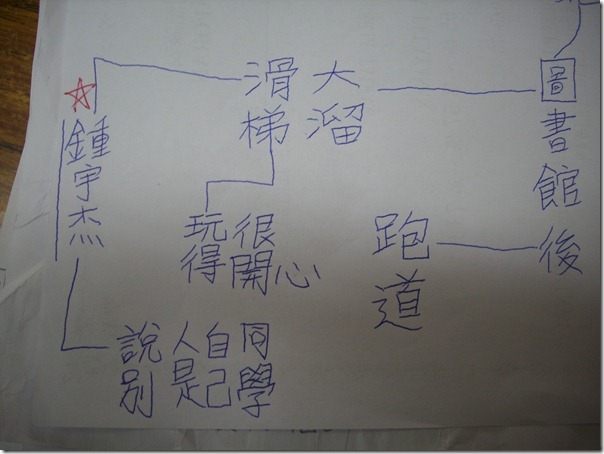 圖書館後
跑道
大溜
滑梯
玩得
很開
心
鍾宇杰
說別
人是
自己
同學